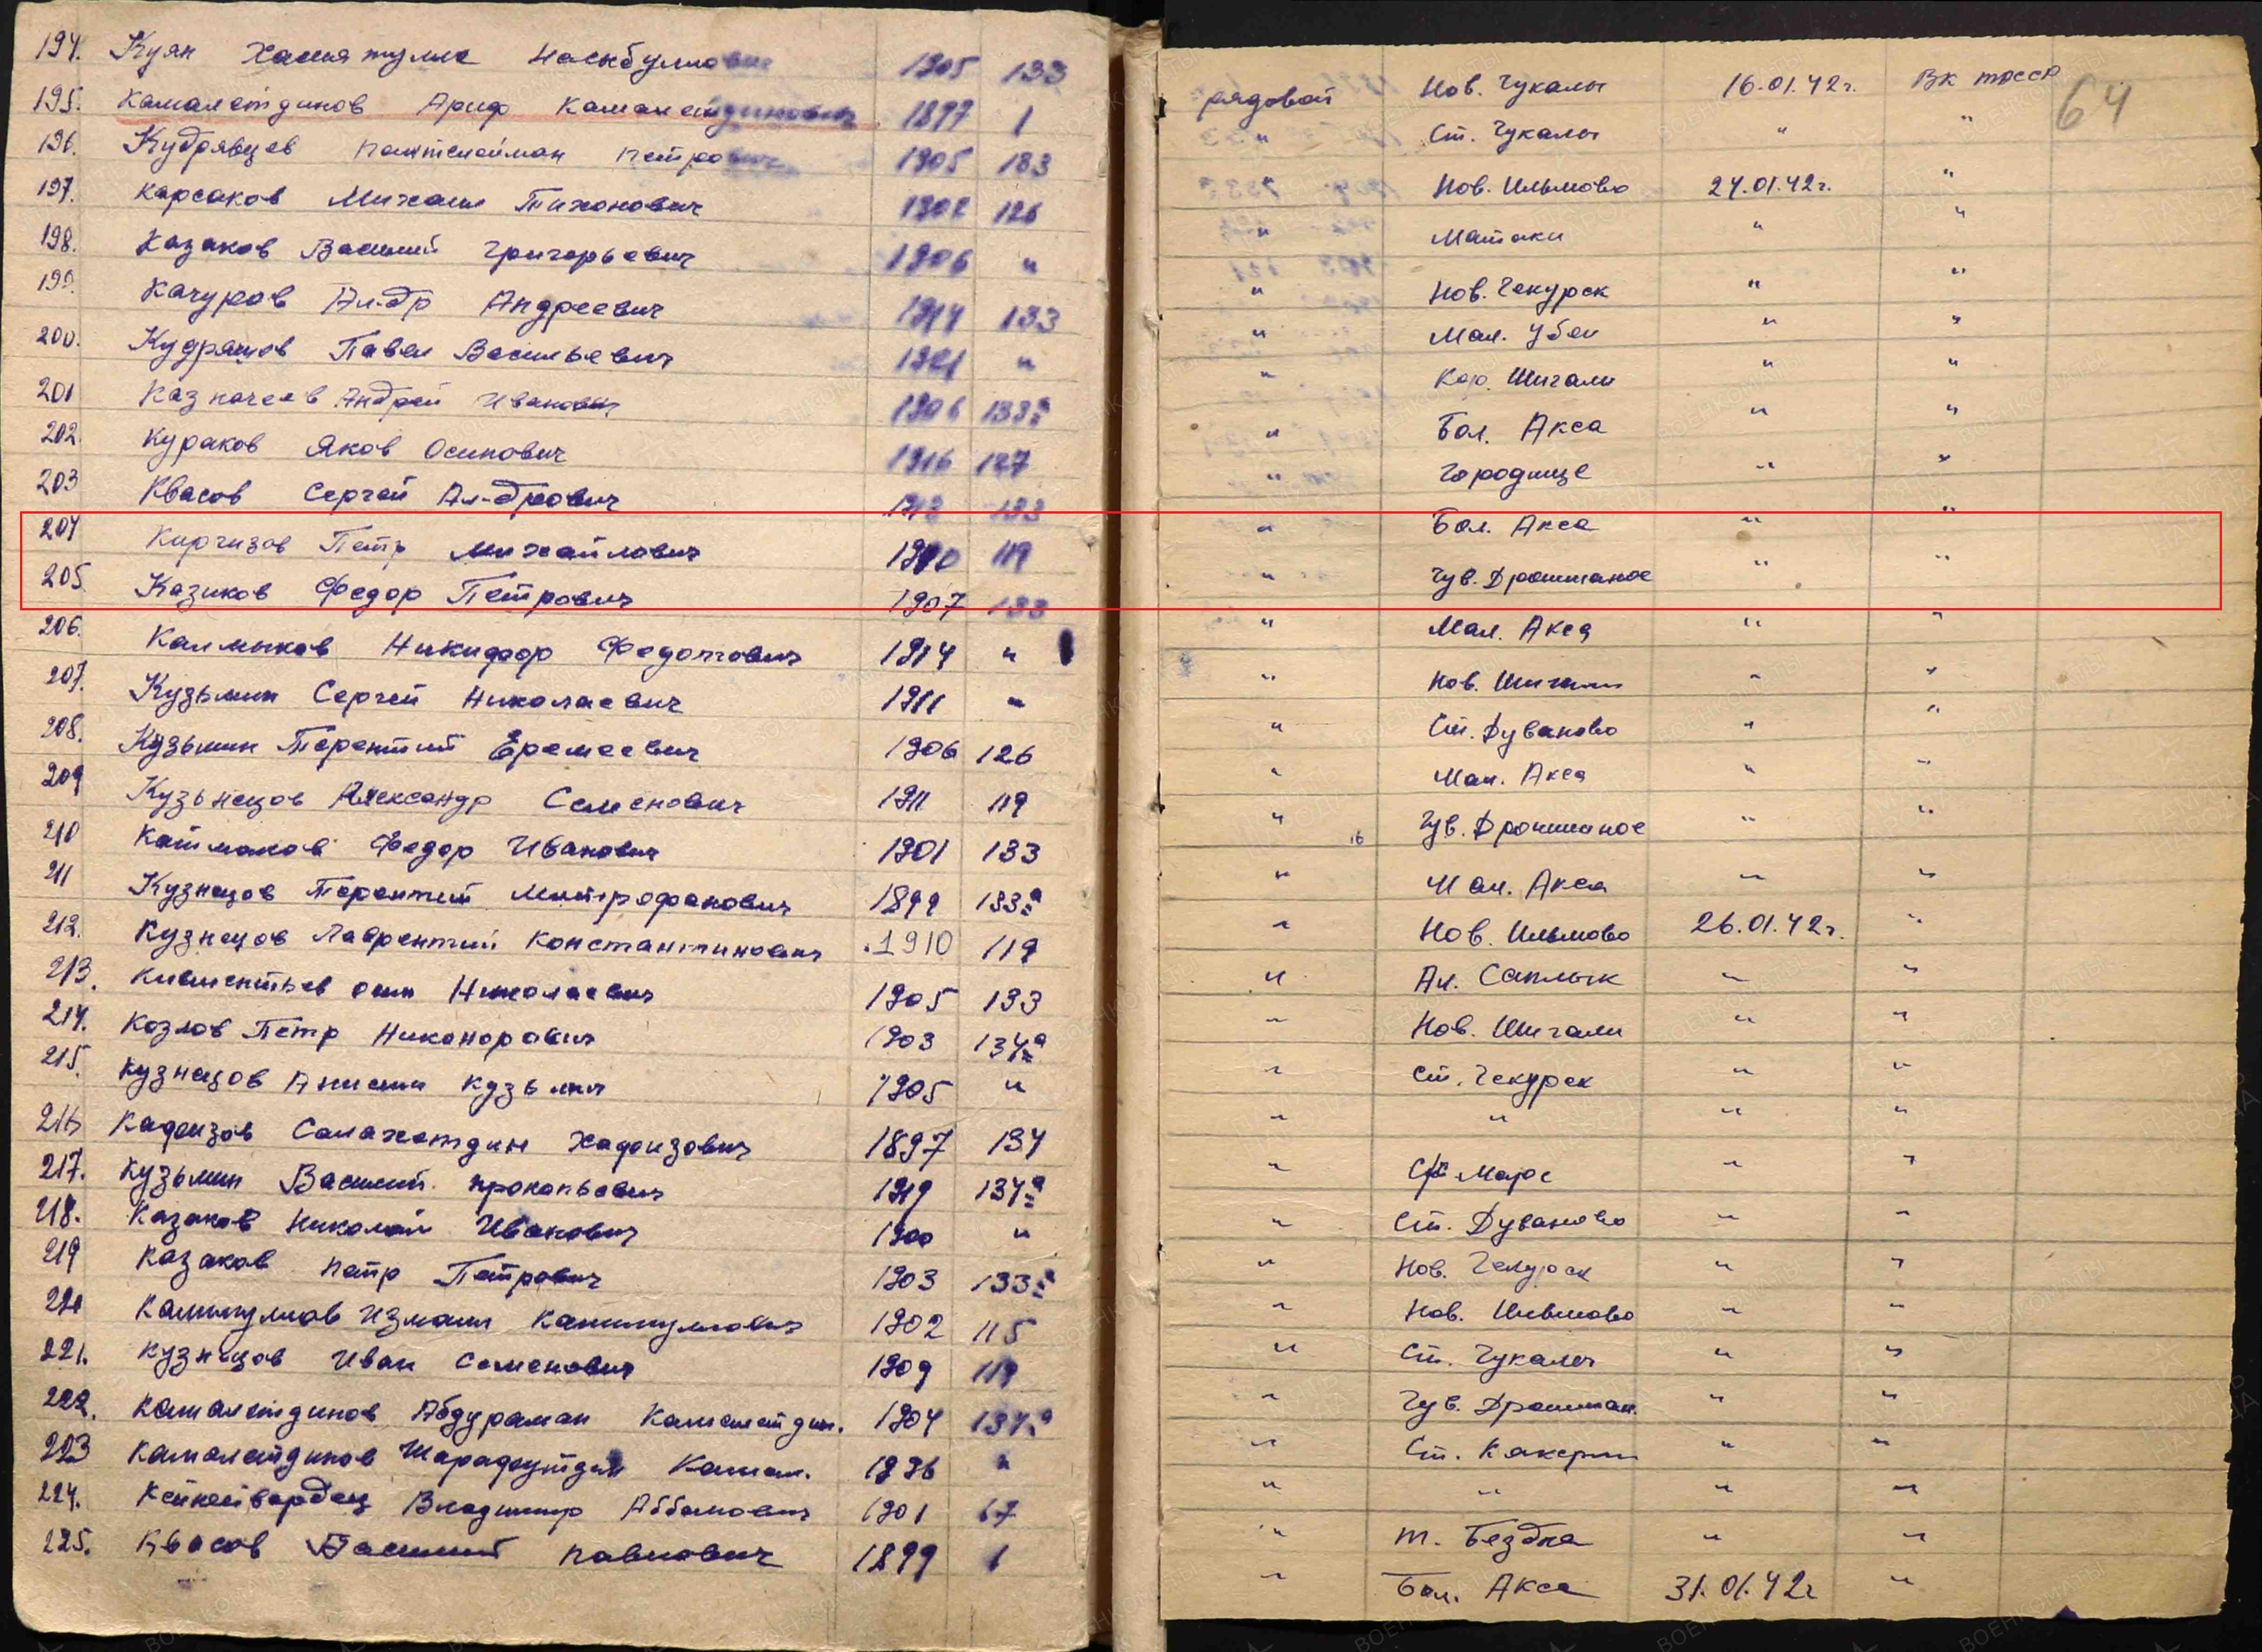 194. Куян Хасиятулла Насыбуллович 1905 133 рядовой Нов. Чукалы 16.01.42г. ВК ТАССР 64
195. Камалетдинов Ариф Камалетдинович 1897 1 " Ст. Чукалы " "
196. Кудрявцев Пантелейман Петрович 1905 133 " Нов. Ильмово 24.01.42г. "
197. Карсаков Михаил Тихонович 1902 126 " Матаки " "
198. Казаков Василий Григорьевич 1906 " " Нов. Чекурск " "
199. Качуров Ал-др Андреевич 1914 133 " Мал. Убеи " "
200. Кудряшов Павел Васильевич 1921 " " Кор. Шигали " "
201 Казначеев Андрей Иванович 1906 133а " Бол. Акса " "
202. Кураков Яков Осипович 1916 127 " Городище " "
203 Квасов Сергей Ал-дрович 133 " Бол. Акса " "
204 Киргизов Петр Михайлович 119 " Чув. Дрожжаное " "
205. Казиков Федор Петрович 1907 133 " Мал. Акса " "
206. Калмыков Никифор Федотович 1914 " " Нов. Шигали " "
207. Кузьмин Сергей Николаевич 1911 " " Ст. Дуваново " "
208. Кузьмин Терентий Еремеевич 1906 126 " Мал. Акса " "
209 Кузьнецов Александр Семенович 1911 119 " Чув. Дрожжаное " "
210 Катмаков Федор Иванович 1901 133 " Мал. Акса " "
211 Кузнецов Терентий Митрофанович 1899 133а " Нов. Ильмово 26.01.42г. "
212. Кузнецов Лаврентий Константинович 1910 119 " Ал. Саплык " "
213. Климентьев Осип Николаевич 1905 133 " Нов. Шигали " "
214. Козлов Петр Никонорович 1903 134а " Ст. Чекурск " "
215. Кузнецов Анисим Кузьмич 1905 " " " " "
216 Кафизов Салахетдин Хафизович 1897 134 " " "
217. Кузьмин Василий Прокопьевич 1919 134а " Ст. Дуваново " "
218. Казаков Николай Иванович 1900 " " Нов. Чекурск " "
219 Казаков Петр Петрович 1903 133а " Нов. Ильмово " "
220 Калимуллов Измаил Калимуллович 1902 115 " Ст. Чукалы " "
221. Кузнецов Иван Семенович 1909 119 " Чув. Дрожжан. " "
222. Камалетдинов Абдураман Камалетдин. 1904 134а " Ст. Какерли " "
223 Камалетдинов Шарафутдин Камал. 1896 " " " " "
224. Владимир 1901 67 " т. Бездна " "
225. Квасов Василий Павлович 1899 1 " Бол. Акса 31.01.42г "